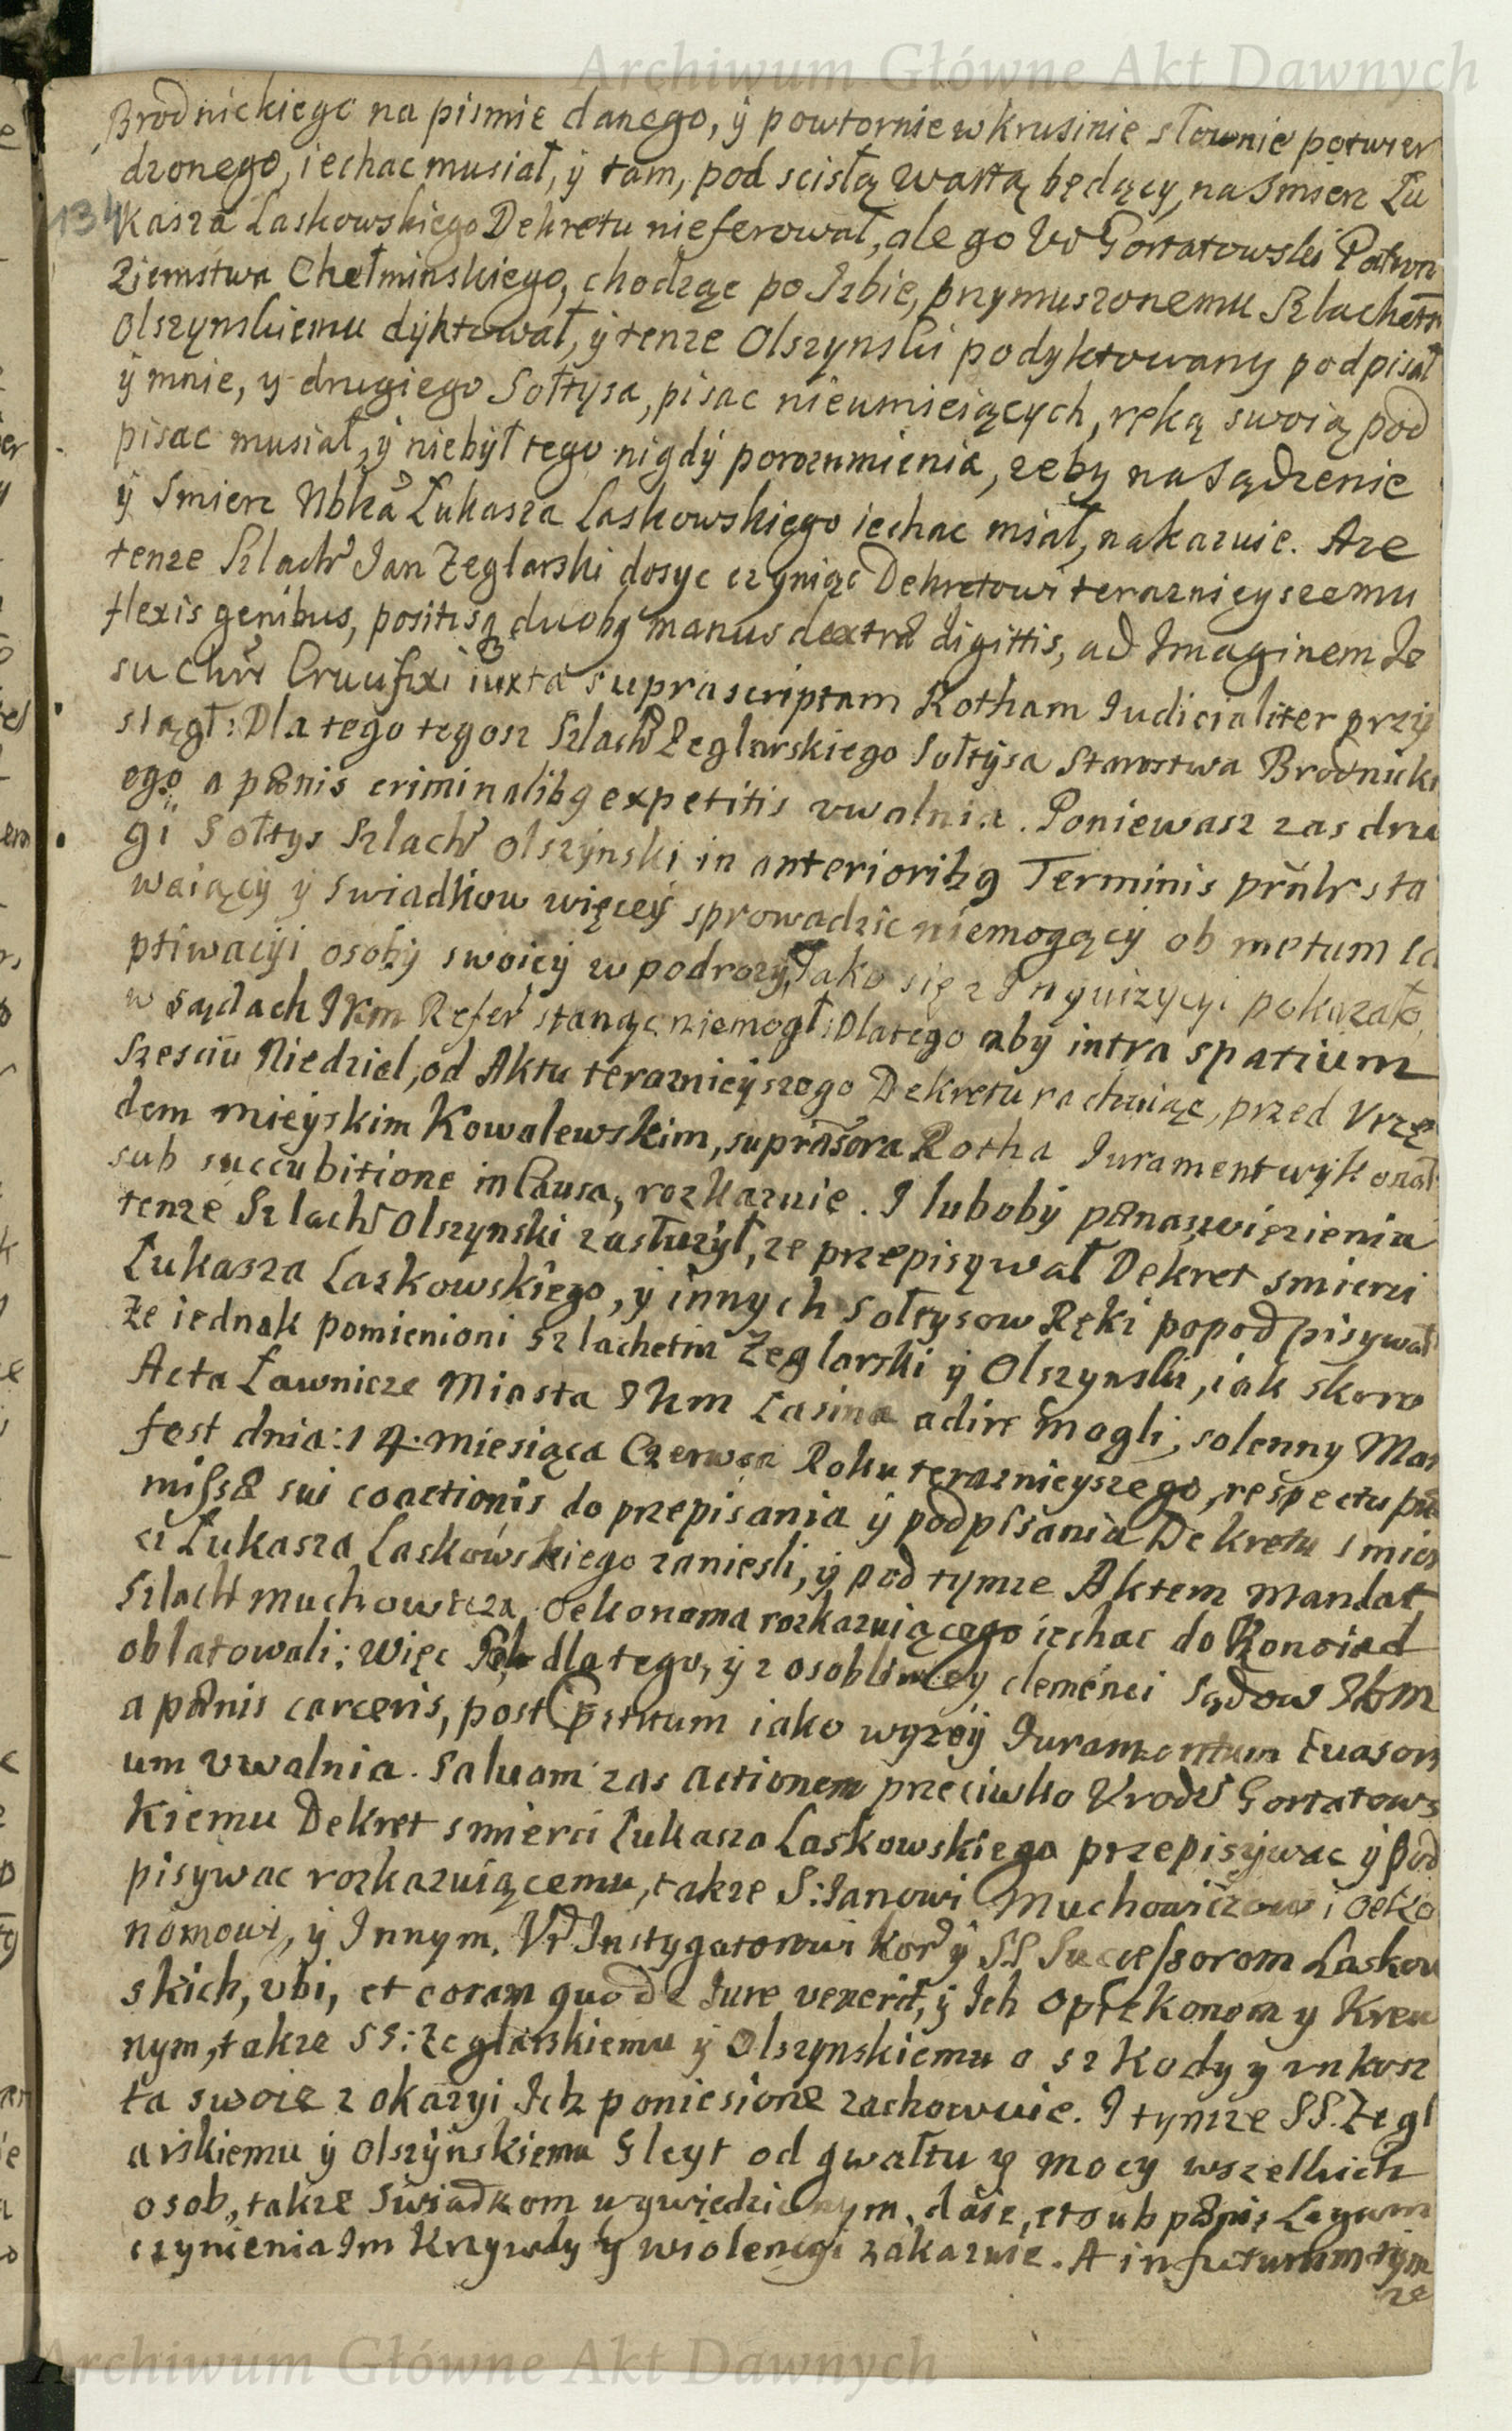 Archiwum Główne Akt Dawnych
Brodnickiego na pismie danego, ÿ powtornie w krusinie słownie potwier
dzonego, iechac musiał, ÿ tam, pod scisłą wartą będący, na Smierc Łu
134
kasza Laskowskiego Dekretu nieferował, ale go W Gortatowski Patron
Ziemstwa Chełminskiego, chodząc po Izbie, przymuszonemu Szlachetn
Olszynskiemu dÿktował, ÿ tenze Olszynski podyktowany podpisał
ÿ mnie, y drugiego Sołtysa, pisac nieumieiących, ręką swoią pod
pisac musiał, ÿ niebył tego nigdÿ porozumienia, zeby na Sądzenie
ÿ Smierc Nbla Łukasza Laskowskiego iechac miał, nakazuie. A ze
tenze Szlach Jan Zeglarski dosyc czyniąc Dekretowi teraznieyszemu
flexis genibus, positisq duobq manus dextra digittis, ad Imaginem Je
su Chri Crucifixi iuxta suprascriptam Rotham Iudicialiter przy
siągł: Dla tego tegosz Szlach Zeglarskiego Sołtysa Starostwa Brodnicki
ego a pænis criminalibq expetitis vwalnia. Poniewasz zas dru
gi Sołtys Szlach Olszynski in anterioribq Terminis prńlr sta
waiący ÿ swiadkow więceÿ sprowadzic niemogący ob metum ca
ptiwacÿi osoby swoieÿ w podrozy, Jako się z Inquizycyi pokazało,
w Sądach Jkm Refer stanąc niemogł: Dlatego aby intra spatium
szesciu Niedziel, od Aktu teraznieÿszego Dekretu rachuiąc, przed Vrzę
dem mieÿskim Kowalewskim, supraſcra Rotha Iurament wÿkonał
sub succubitione in Causa, rozkazuie. I luboby pæną więzienia
tenze Szlach Olszynski zasłuzył, ze przepisywał Dekret smierci
Łukasza Laskowskiego, ÿ innych Sołtysow Ręki popodpisywał
Ze iednak pomienioni szlachetni Zeglarski ÿ Olszynski, iak skoro
Acta Ławnicze Miasta Jkm Łasina adire mogli, solenny Man
fest dnia: 14. miesiąca Czerwca Roku teraznieyszego, respectu præ
missæ sui coactionis do przepisania ÿ podpisania Dekretu smier
ci Łukasza Laskowskiego zaniesli, ÿ pod tymze Aktem Mandat
Szlach Muchowicza Oekonoma rozkazuiącego iechac do Konoiad
oblatowali; Więc dla tego, ÿ z osobliwey clemenci Sądow Jkm
a pænis carceris, post Pstitum iako wyzeÿ Iuramentum Euasor
um vwalnia. Saluam zas actionem przeciwko Vrodz Gortatows
kiemu Dekret smierci Łukasza Laskowskiego przepisywac ÿ pod
pisywac rozkazuiącemu, takze S: Janowi Muchowiczowi Oeko
nomowi, ÿ Innym. Vr Instygatorowi Kor ÿ SS Successorom Laskow
skich, vbi, et coram quo de Iure venerit, ÿ Ich Opiekonom y Krew
nym, takze SS: Zeglarskiemu ÿ Olszynskiemu o szkody y nkosz
ta swoie z okazyi Ich poniesione zachowuie. I tymze SS. Zegl
arskiemu ÿ Olszÿnskiemu Gleyt od gwałtu y mocy wszelkich
osob, takze swiadkom wywiedzionym, daie, et sub pænis Legum
czynienia Im Krzywdy y wiolencyi zakazuie. A in futurum tym
ze
Archiwum Główne Akt Dawnych